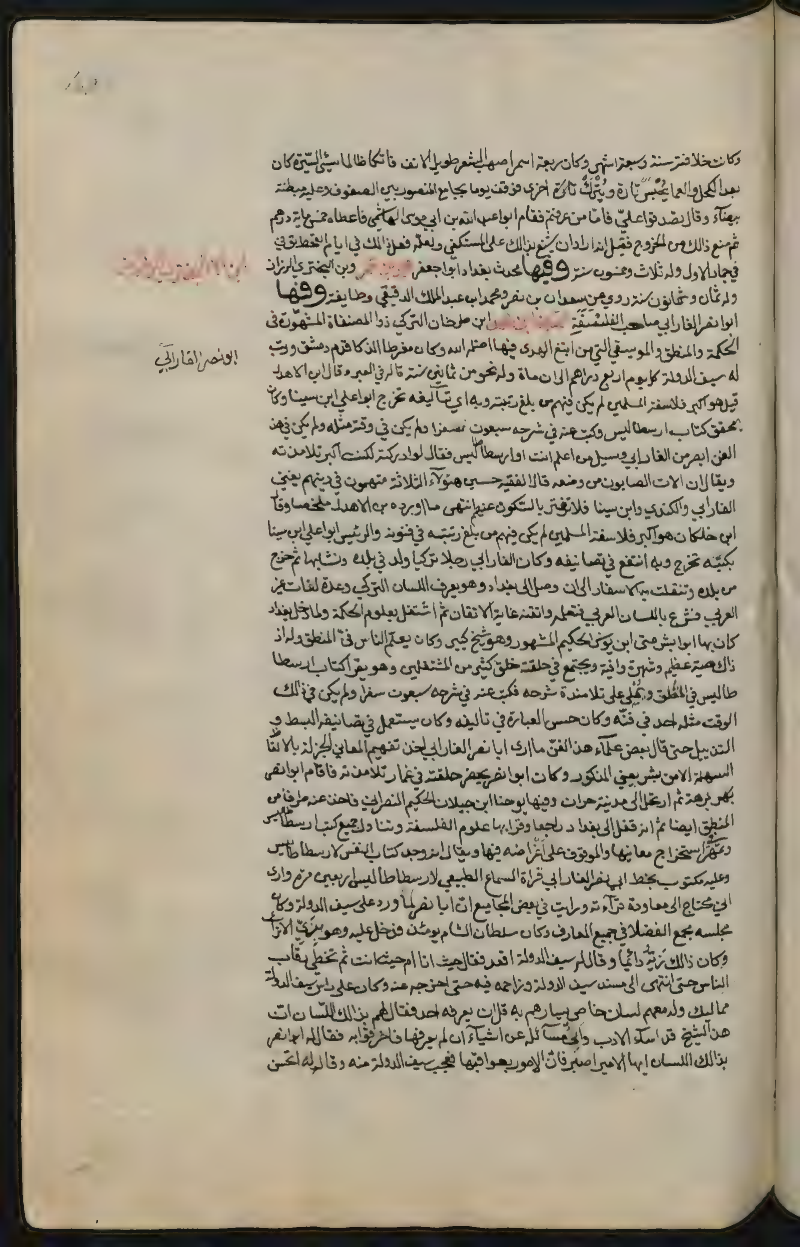 وكانت خلافته سنة وسبعة اشهر وكان ربعة اسمر اصهب الشعر طويل الانف فاتكا ظالما سيئ السيرة كان
بعد الكحل والعما يحبس تارة ويترك تارة اخرى فوقف يوما بجامع المنصور بين الصفوف وعليه مبطنة
بيضاء وقال تصدقوا عليّ فانا من عرفتم فقام ابو عبد الله بن ابي موسى الهاشمي فاعطاه خمسماية درهم
ثم منع ذالك من الخروج فقيل انه اراد ان يشنع بذالك على المستكفي ولعله فعل ذالك في ايام القحط توفي
في جماد الاول وله ثلاث وخمسون سنة وفيها محدث بغداد ابو جعفر وبن البختري الرزاز
وله ثمان وثمانون سنة روى عن سعدان بن نصر ومحمد ابن عبد الملك الدقيقي وطايفة وفيها
ابو نصر الفارابي صاحب الفلسفة ابن طرخان التركي ذوا المصنفاة المشهورة في
الحكمة والمنطق والموسيقى التي من ابتغ الهدى فيها اضله الله وكان مفرطا الذكا قدم دمشق ورتب
له سيف الدولة كل يوم اربع دراهم الى ان ماة وله نحو من ثمانين سنة قاله في العبر وقال ابن الاهدل
قيل هو اكبر فلاسفة المسلمين لم يكن فيهم من بلغ رتبته وبه اي تاليفه تخرج ابو علي ابن سينا وكان
يحقق كتاب ارسطاليس وكتب عنه في شرحه سبعون سفرا ولم يكن في وقته مثله ولم يكن في هذ
الفن ابصر من الفارابي وسيل من اعلم انت او ارسطاليس فقال لو ادركته لكنت اكبر تلامذته
ويقال ان الات الصابون من وضعه قال الفقيه حسين هؤلاء الثلاثة متهمون في دينهم يعني
الفارابي والكندي وابن سينا فلا تغتر بالسكوت عنهم انتهى ما اورده من الاهدل ملخصا وقال
ابن خلكان هو اكبر فلاسفة المسلمين لم يكن فيهم من بلغ رتبته في فنونه والرئيس ابو علي ابن سينا
بكتبه تخرج وبه انتفع في تصانيفه وكان الفارابي رجلا تركيا ولد في بلده ونشا بها ثم خرج
من بلده وتنقلت به الاسفار الى ان وصل الى بغداد وهو يعرف اللسان التركي وعدة لغات غير
العربي فشرع باللسان العربي فتعلمه واتقنه غاية الاتقان ثم اشتغل بعلوم الحكمة ولما دخل بغداد
كان بها ابو ابشر متى ابن يونس الحكيم المشهور وهو شيخ كبير وكان يعلم الناس فن المنطق وله اذ
ذاك صية عظيم وشهرة وافية ويجتمع في حلقته خلق كثير من المشتغلين وهو يقرا كتاب ارسطا
طاليس في المنطق ويملي على تلامذة شرحه فكتب عنه في شرحه سبعون سفرا ولم يكن في ذالك
الوقت مثله احد في فنه وكان حسن العبارة في تاليفه وكان يستعمل في تصانيفه البسط و
التذييل حتى قال بعض علماء هذا الفن ما ارى ابا نصر الفارابي اخذ تفهيم المعاني الجزلة بالالفا
السهلة الا من بشر يعني المذكور وكان ابو نصر يحضر حلقته في غمار تلامذته فاقام ابو نصر
بهم برهة ثم ارتحل الى مدينة حران وفيها يوحنا ابن جيلان الحكيم النصراني فاخذ عنه طرفا من
المنطق ايضا ثم انه قفل الى بغداد راجعا وقرا بها علوم الفلسفة وتناول جميع كتب ارسطاليس
وتمهر استخراج معانيها والوقوف على اغراضه فيها ويقال انه وجد كتاب النفس لارسطاطاليس
وعليه مكتوب بخط ابي نصر الفارابي قراة السماع الطبيعي لارسطاطاليس اربعين مرة وارى
اني محتاج الى معاودة قراءته ورايت في بعض المجاميع ان ابا نصر لما ورد على سيف الدولة وكان
مجلسه مجمع الفضلا في جميع المعارف وكان سلطان الشام يومئذ فدخل عليه وهو بزي الاتراك
وكان ذالك زيه دائما وقال له سيف الدولة اقعد فقال حيث انا ام حيث انت ثم تخطى رقاب
الناس حتى انتهى الى مسند سيف الدولة وزاحمه فيه حتى اخرجه عنه وكان على راس سيف الدولة
مماليك وله معهم لسان خاص يسارهم به قل ان يعرفه احد فقال لهم بذالك اللسان ان
هذا الشيخ قد اساء الادب واني مسائله عن اشياء ان لم يعرفها فاخرقوا به فقال له ابو نصر
بذالك اللسان ايها الامير اصبر فان الامور بعواقبها فعجب سيف الدولة منه وقال له اتحسن
ابو نصر الفارابي